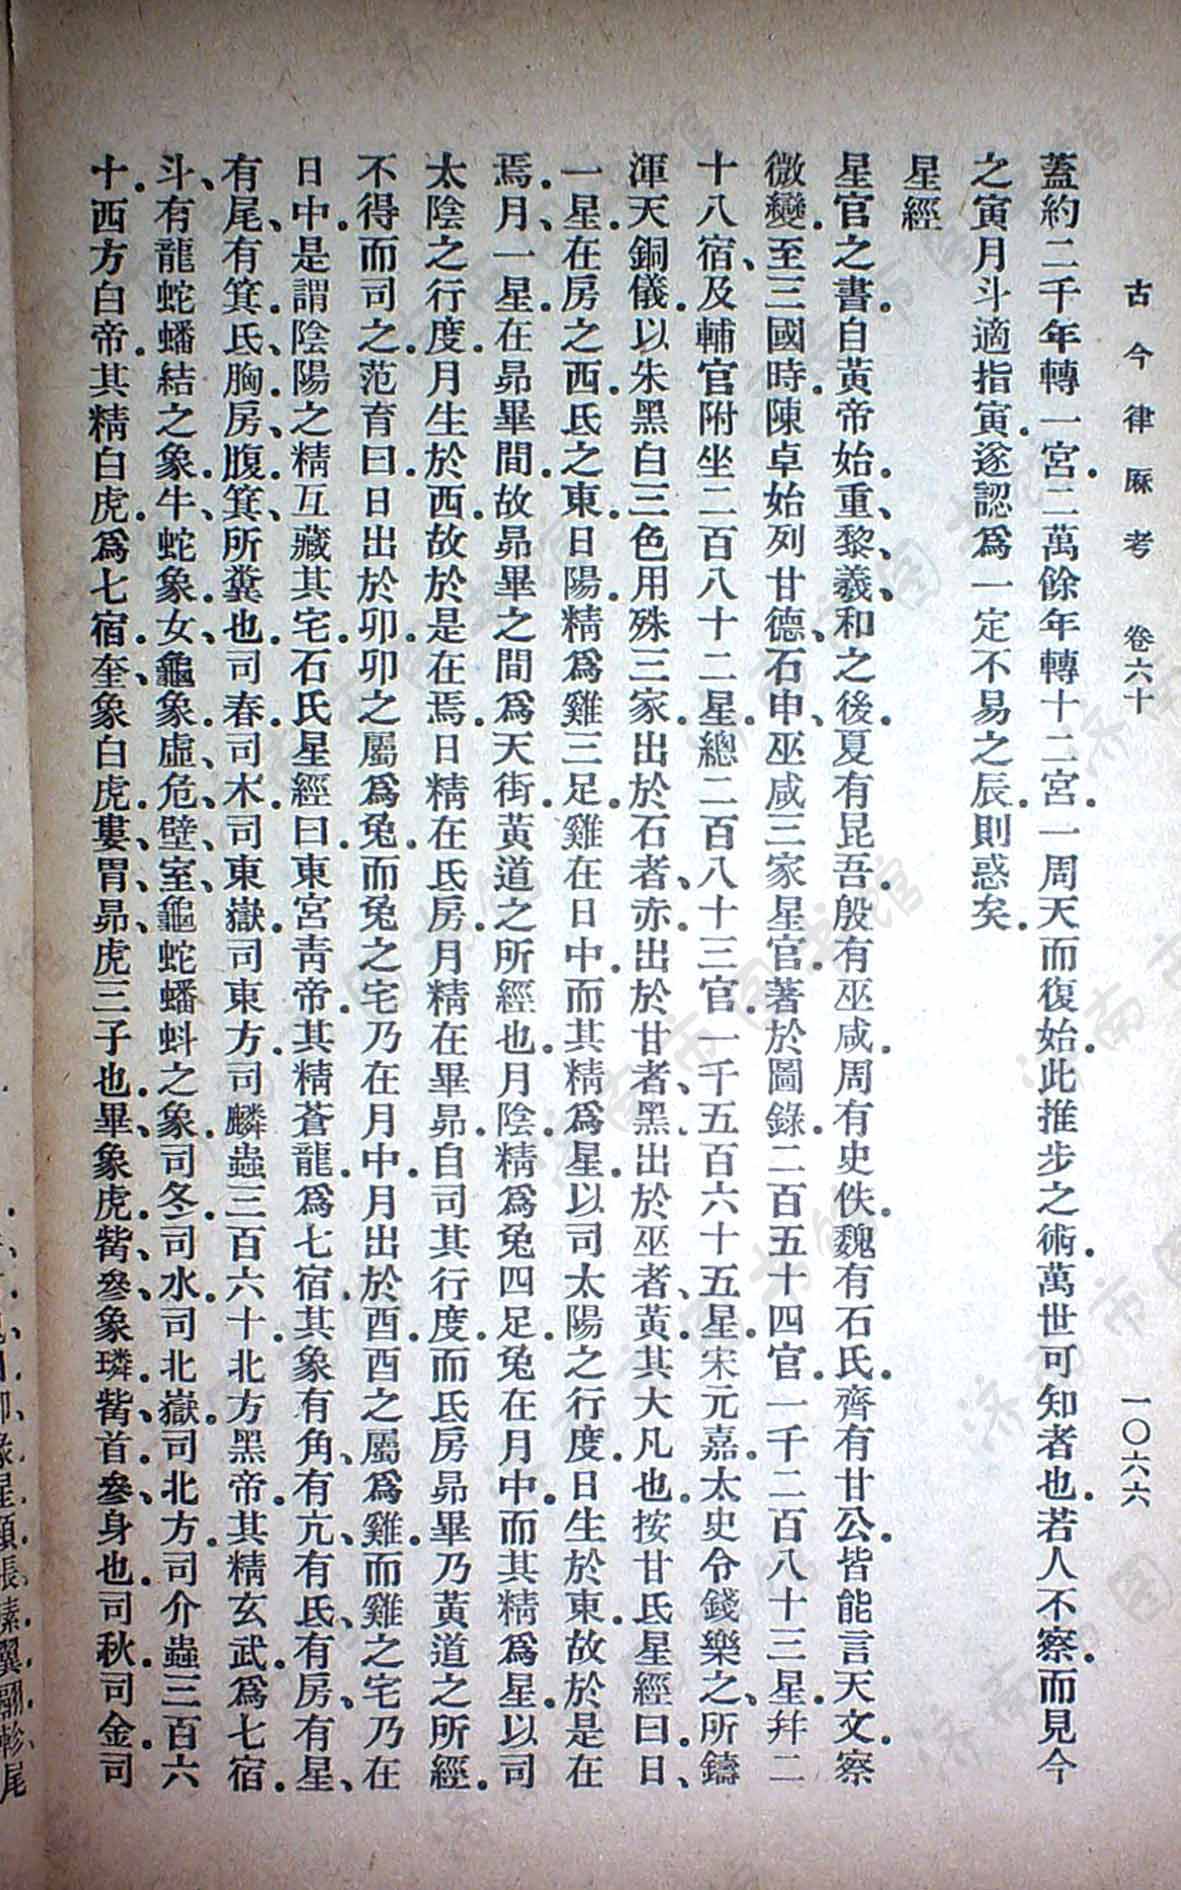 古今律厤考　卷六十　一〇六六
蓋約二千年轉一宮二萬餘年轉十二宮一周天而復始此推步之術萬世可知者也若人不察而見今
之寅月斗適指寅遂認爲一定不易之辰則惑矣
星經
星官之書自黃帝始重黎羲和之後夏有昆吾殷有巫咸周有史佚魏有石氏齊有甘公皆能言天文察
微變至三國時陳卓始列甘德石申巫咸三家星官著於圖錄二百五十四官一千二百八十三星幷二
十八宿及輔官附坐二百八十二星總二百八十三官一千五百六十五星宋元嘉太史令錢樂之所鑄
渾天銅儀以朱黑白三色用殊三家出於石者赤出於甘者黑出於巫者黃其大凡也按甘氏星經曰日
一星在房之西氐之東日陽精爲雞三足雞在日中而其精爲星以司太陽之行度日生於東故於是在
焉月一星在昴畢間故昴畢之間爲天街黃道之所經也月陰精爲兔四足兔在月中而其精爲星以司
太陰之行度月生於西故於是在焉日精在氐房月精在畢昴自司其行度而氐房昴畢乃黃道之所經
不得而司之范育曰日出於卯卯之屬爲兔而兔之宅乃在月中月出於酉酉之屬爲雞而雞之宅乃在
日中是謂陰陽之精互藏其宅石氏星經曰東宮靑帝其精蒼龍爲七宿其象有角有亢有氐有房有星
有尾有箕氐胸房腹箕所糞也司春司木司東嶽司東方司麟蟲三百六十北方黑帝其精玄武爲七宿
斗有龍蛇蟠結之象牛蛇象女龜象虛危壁室龜蛇蟠蚪之象司冬司水司北嶽司北方司介蟲三百六
十西方白帝其精白虎爲七宿奎象白虎婁胃昴虎三子也畢象虎觜參象璘觜首參身也司秋司金司